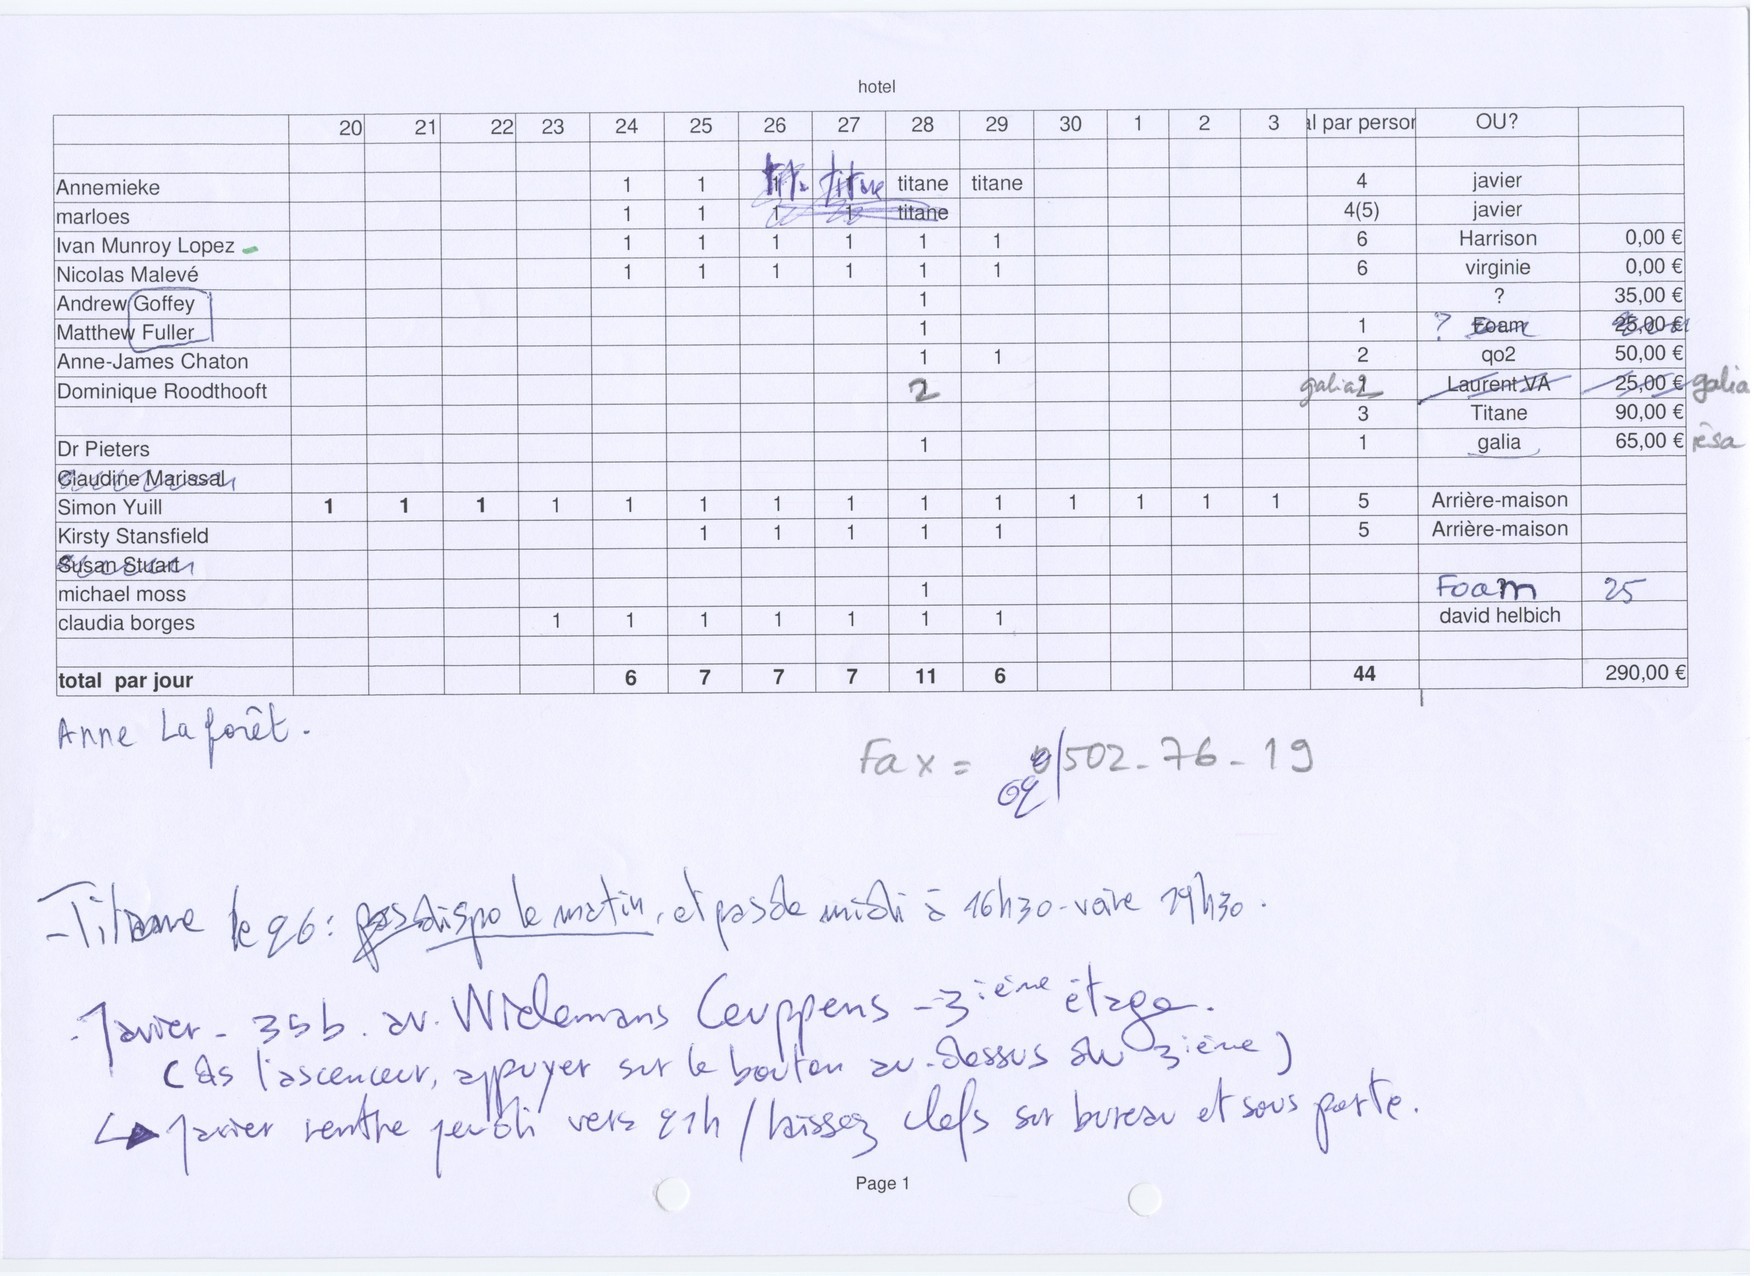 hotel
20 21 22 23 24 25 26 27 28 29 30 1 2 3 al par person OU?
Annemieke 1 1 tit. titane titane titane 4 javier
marloes 1 1 1 1 titane 4(5) javier
Ivan Munroy Lopez 1 1 1 1 1 1 6 Harrison 0,00 €
Nicolas Malevé 1 1 1 1 1 1 6 virginie 0,00 €
Andrew Goffey 1 ? 35,00 €
Matthew Fuller 1 1 ? Foam 25,00 €
Anne-James Chaton 1 1 2 qo2 50,00 €
Dominique Roodthooft 2 galia 2 Laurent VA 25,00 € galia
3 Titane 90,00 €
Dr Pieters 1 1 galia 65,00 € résa
Claudine Marissal
Simon Yuill 1 1 1 1 1 1 1 1 1 1 1 1 1 1 5 Arrière-maison
Kirsty Stansfield 1 1 1 1 1 5 Arrière-maison
Susan Stuart
michael moss 1 Foam 25
claudia borges 1 1 1 1 1 1 1 david helbich
total par jour 6 7 7 7 11 6 44 290,00 €
Anne Laforêt.
Fax = 02/502-76-19
- Titane le 26 : pas dispo le matin, et pas de midi à 16h30 - voire 19h30.
- Javier - 35b. av. Wielemans Ceuppens - 3ième étage.
(ds l'ascenceur, appuyer sur le bouton au-dessus du 3ième)
↳ Javier rentre jeudi vers 21h / laissez clefs sur bureau et sous porte.
Page 1